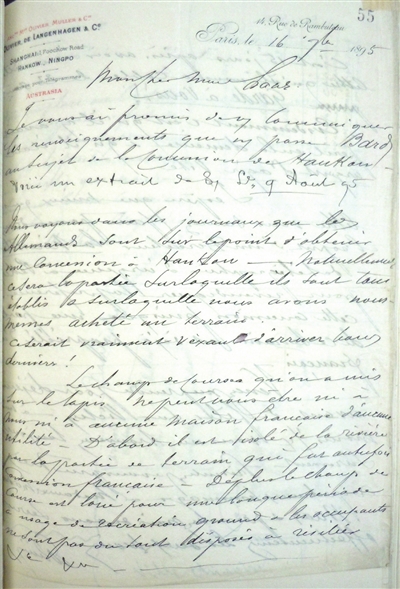 55
14, Rue de Rambuteau
Paris, le 16 7bre 1895
DE LANGENHAGEN & Co
SHANGHAI
HANKOW, NINGPO
AUSTRASIA
Mon cher Mme Haas
Je vous ai promis de vs communiquer
les renseignements que vs passe Bard
au sujet de la Concession de Hankow
Voici un extrait de sa du 9 Août 95
Nous voyons dans les journaux que les
Allemands sont sur le point d'obtenir
une Concession à Hankow — naturellement
ce sera la partie sur laquelle ils sont tous
établis & sur laquelle nous avons nous-
mêmes acheté un terrain
ce serait vraiment vexant d'arriver bons
derniers!
Le champ de courses qu'on a mis
sur le tapis ne peut nous être ni à
nous ni à aucune maison française d'aucune
utilité — D'abord il est isolé de la rivière
par la partie de terrain qui fut autrefois
Concession française — De plus le champ de
Course est loué pour une longue période
à usage de recréation ground & les occupants
ne sont pas du tout disposés à résilier